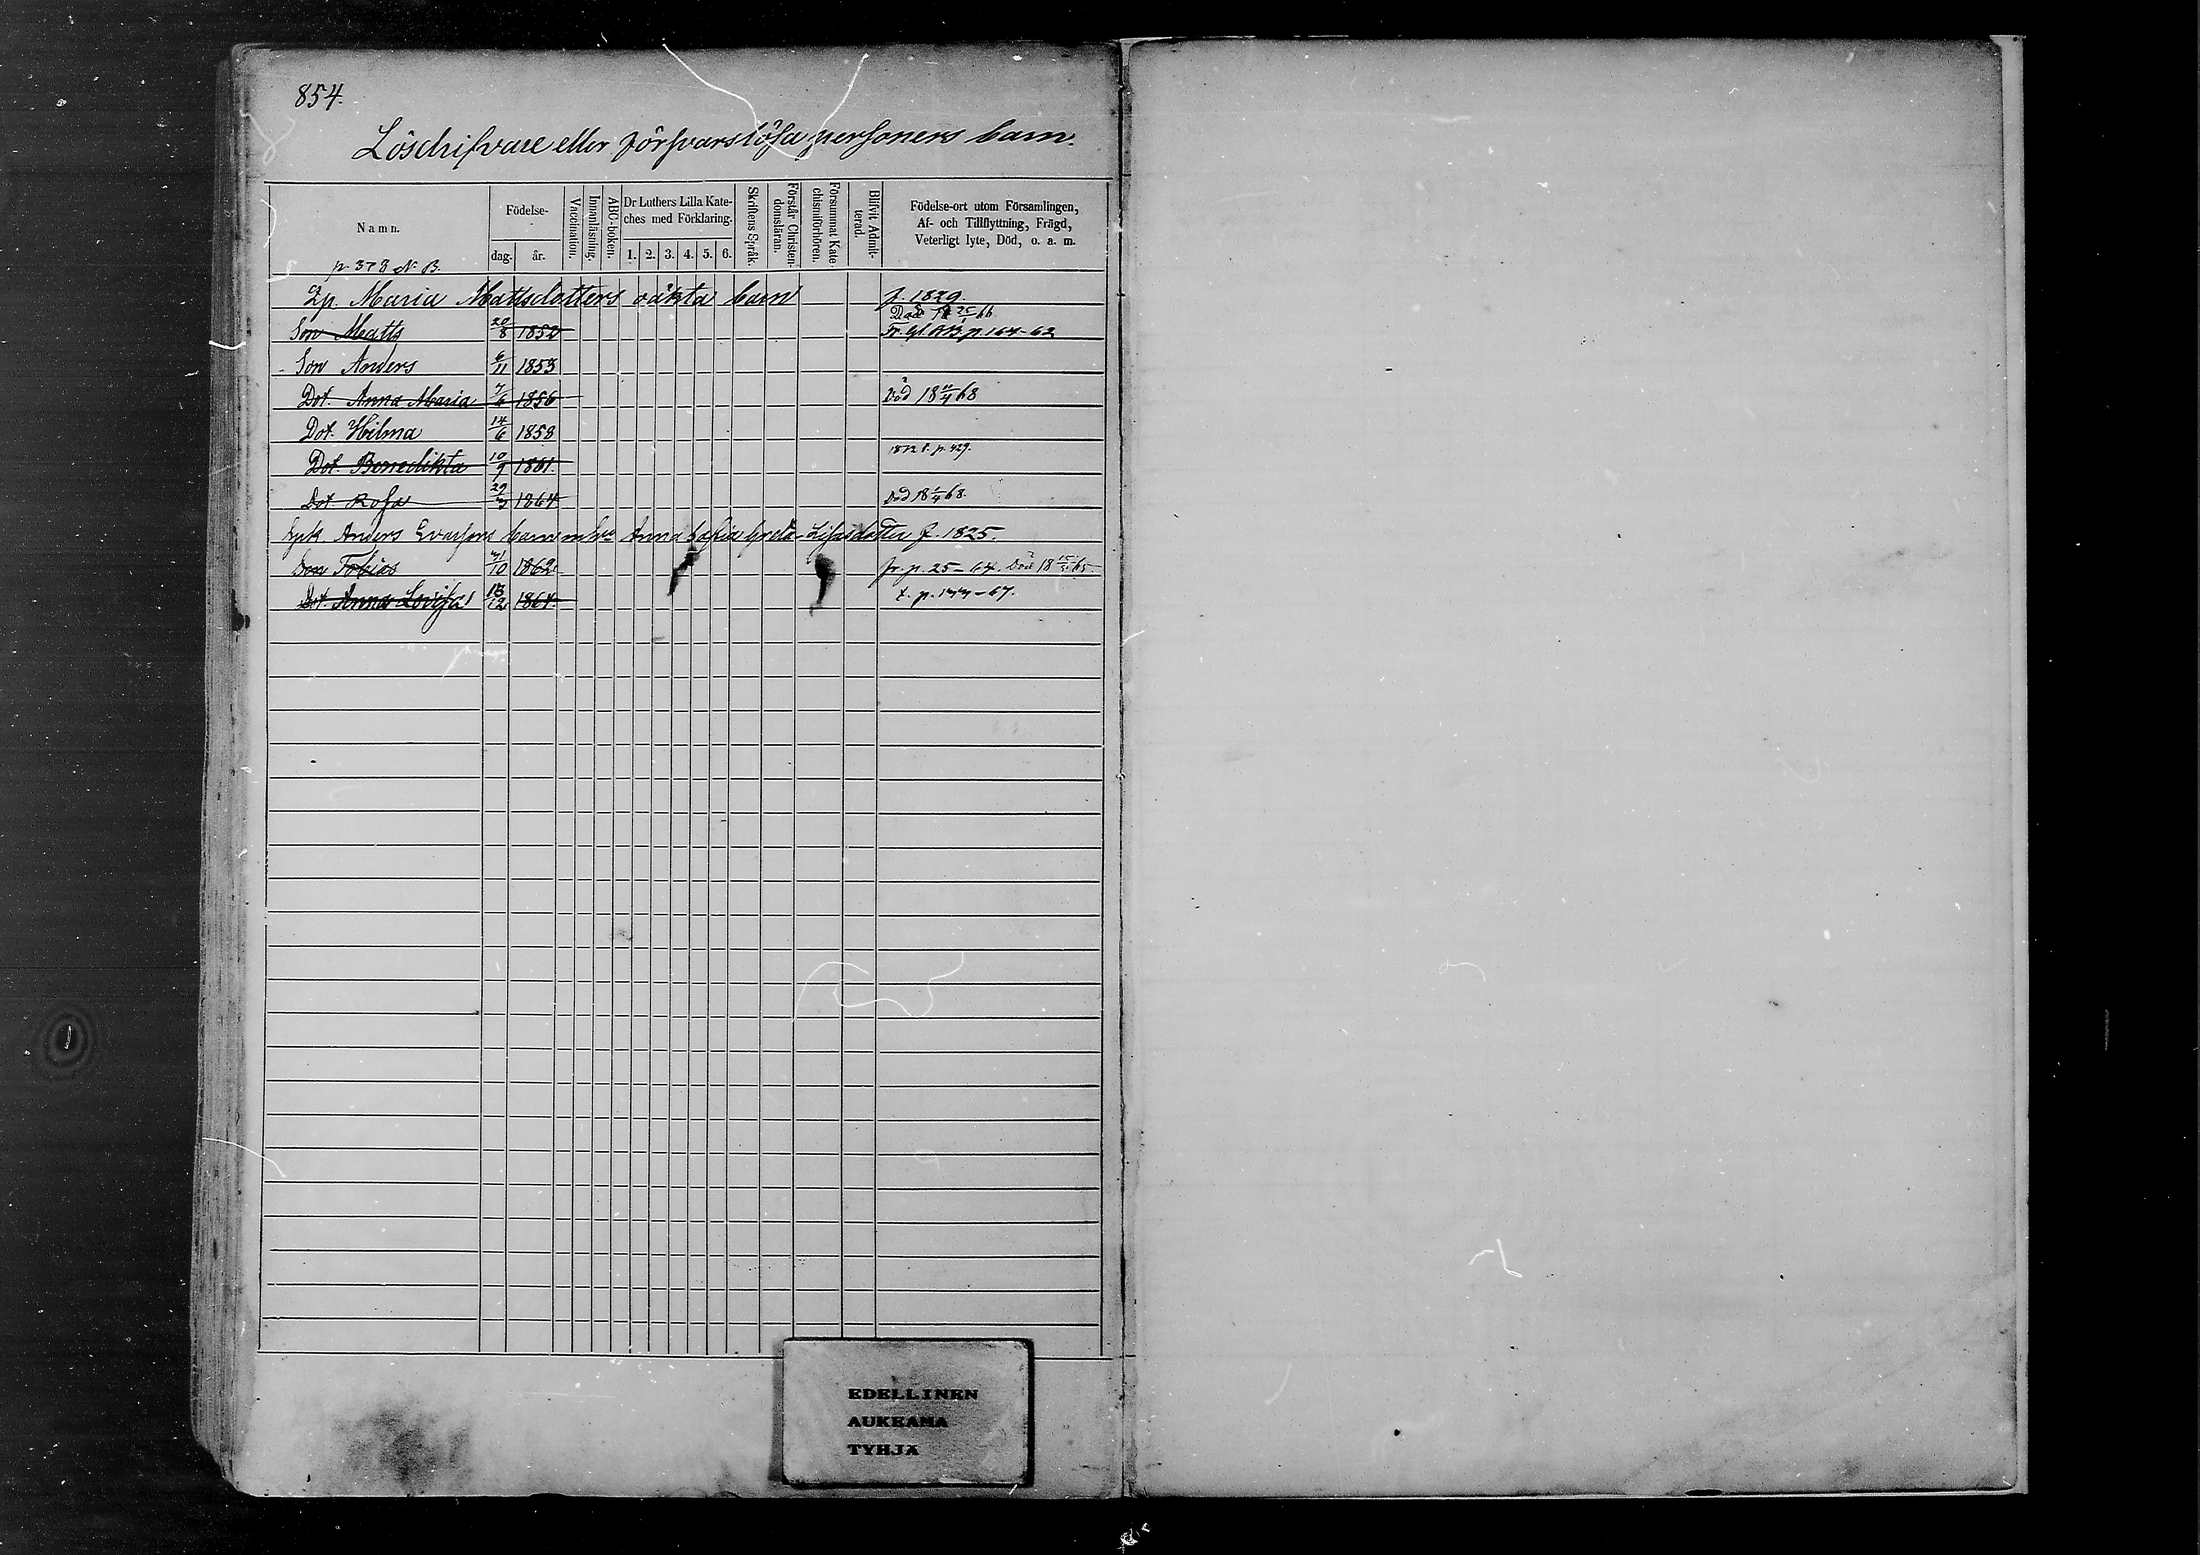 854.
Löschifvare eller försvarslösa personers barn.
Namn.
Födelse-
dag. år.
Vaccination.
Innanläsning.
ABC-boken.
Dr Luthers Lilla Kate-
ches med Förklaring.
1. 2. 3. 4. 5. 6.
Skriftens Språk.
Förstår Christen-
domsläran.
Försummat Kate-
chismiförhören.
Blifvit Admit-
terad.
Födelse-ort utom Församlingen,
Af- och Tillflyttning, Frägd,
Veterligt lyte, Död, o. a. m.
p. 378 N. B.
Zp. Maria Mattsdotters oäkta barn f. 1829.
Son Matts 20/8 1852 Död 18 25/1 66
Fr. Gl. BB p 164-62
Son Anders 6/11 1853
Dot. Anna Maria 7/6 1856 Död 18 11/4 68
Dot. Hilma 14/6 1858
Dot. Benedikta 10/9 1861. 1872 t. p. 429.
Dot. Rosa 29/3 1864 Död 18 1/4 68.
Anders Evasons barn m. h. Anna Sofia Greta Lisasdotter f. 1825.
Son Tobias 31/10 1862 fr. p. 25-64. Död 18 65
Dot. Anna Lovisa 18/12 1864. t. p. 177-67.
EDELLINEN
AUKEAMA
TYHJÄ